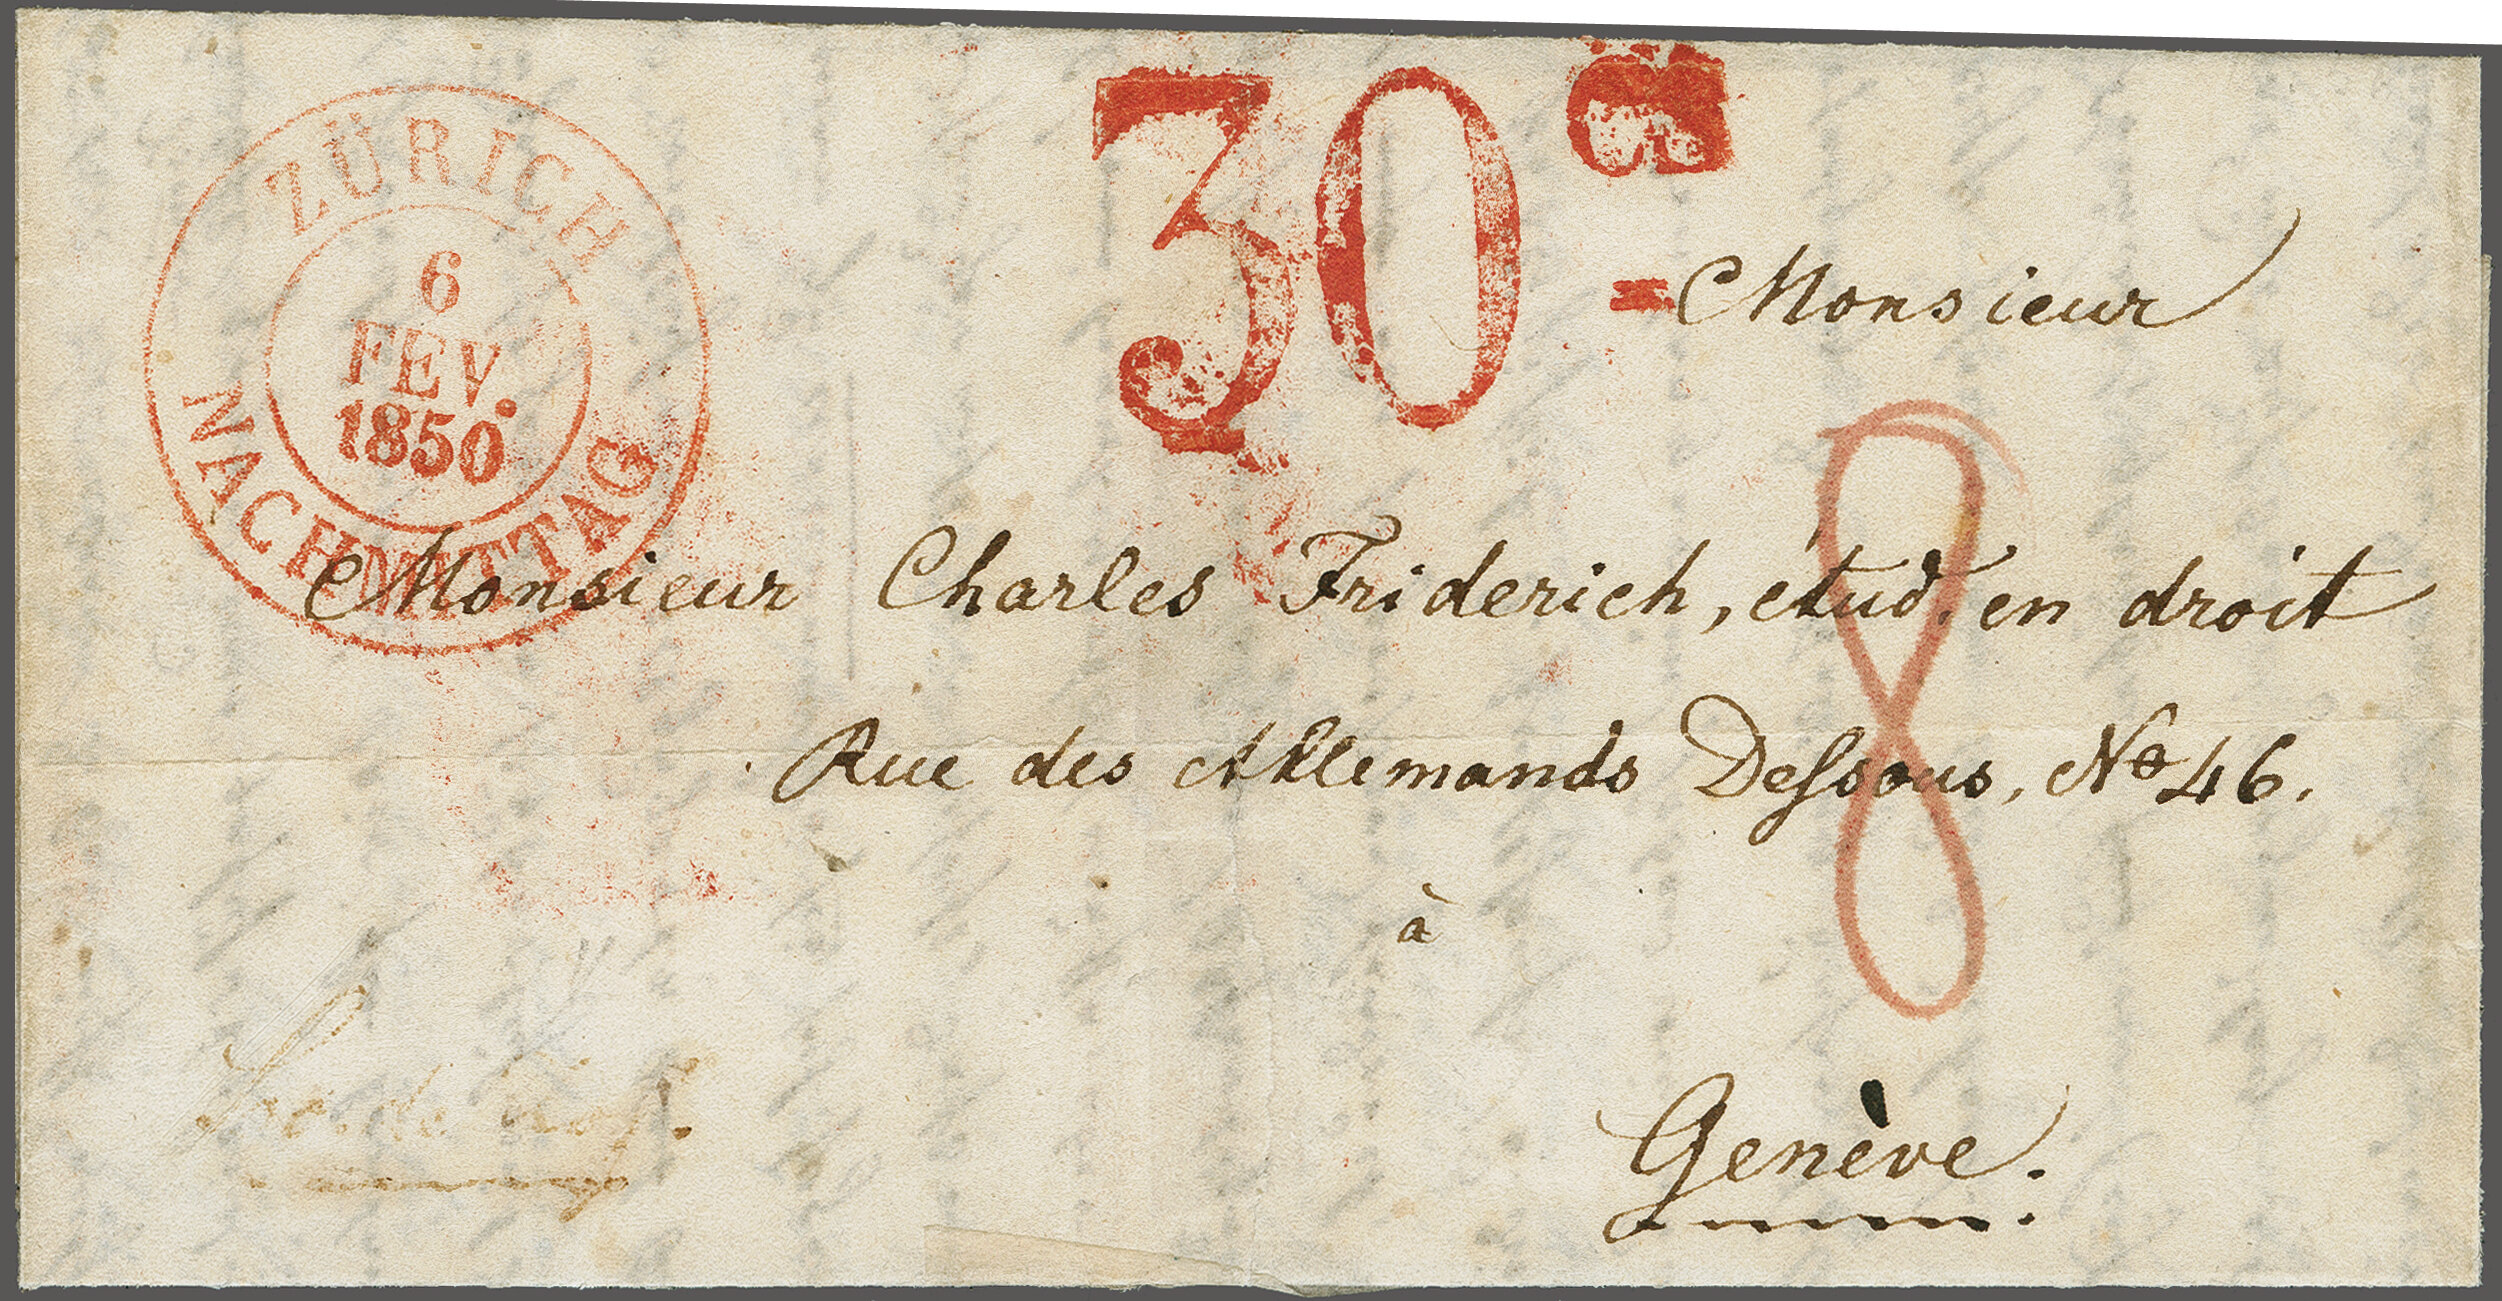 ZÜRICH
6
FEV.
1850
NACHMITTAG
30 cs
Monsieur
Monsieur Charles Friderich, étud. en droit
Rue des Allemands Dessous, No 46.
8
à
Genève.